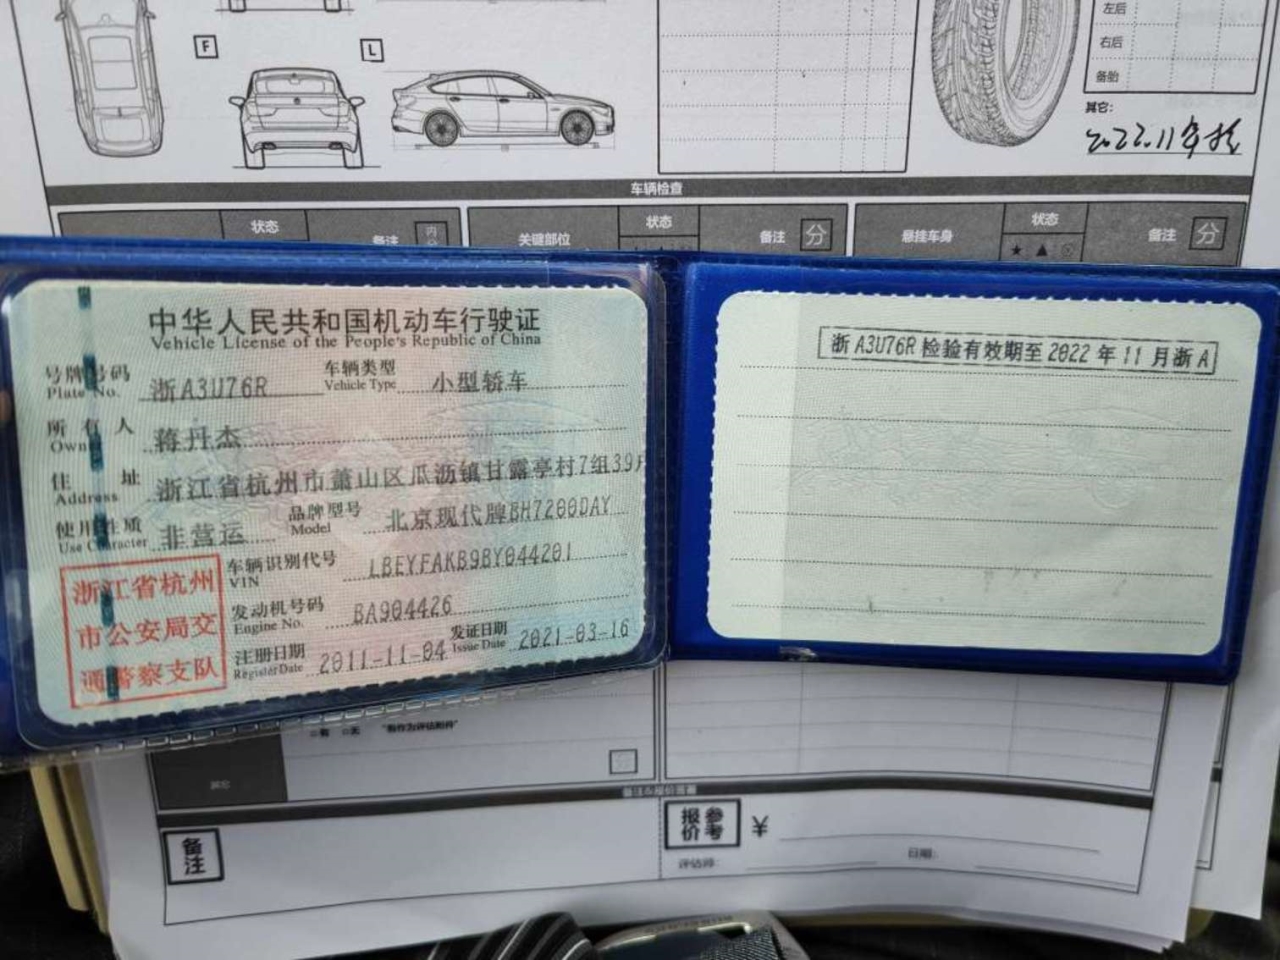 F
L
左后
右后
备胎
其它:
2022.11年检
车辆检查
状态
备注
关键部位
状态
备注
分
悬挂车身
状态
★ ▲
备注
分
中华人民共和国机动车行驶证
Vehicle License of the People's Republic of China
号牌号码 浙A3U76R 车辆类型 小型轿车
Plate No. Vehicle Type
所有人 蒋丹杰
Owner
住址 浙江省杭州市萧山区瓜沥镇甘露亭村7组39户
Address
使用性质 非营运 品牌型号 北京现代牌BH7200DAY
Use Character Model
浙江省杭州
市公安局交
通警察支队
车辆识别代号 LBEYFAKB9BY044201
VIN
发动机号码 BA904426
Engine No.
注册日期 2011-11-04 发证日期 2021-03-16
Register Date Issue Date
浙A3U76R 检验有效期至 2022 年 11 月浙 A
其它
备注
参考
报价
¥
评估师:
日期: